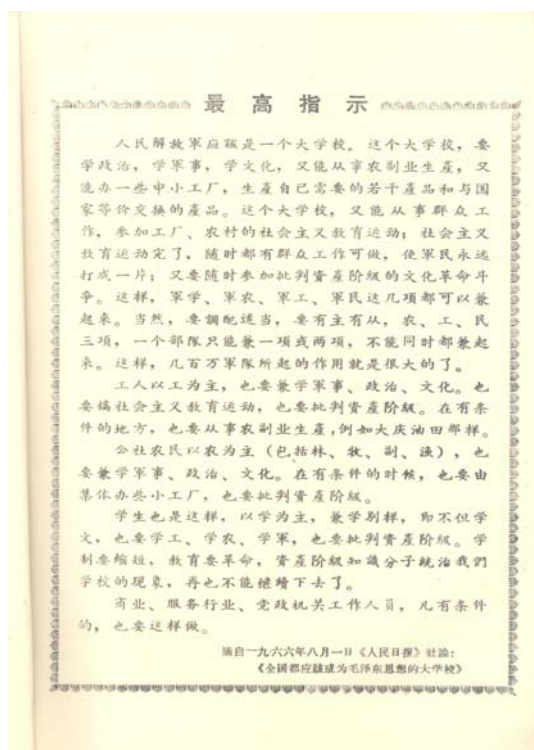 最高指示
人民解放軍应該是一个大学校。这个大学校，要
学政治，学軍事，学文化，又能从事农副业生產，又
能办一些中小工厂，生產自己需要的若干產品和与国
家等价交换的產品。这个大学校，又能从事群众工
作，参加工厂、农村的社会主义教育运动；社会主义
教育运动完了，随时都有群众工作可做，使軍民永远
打成一片；又要随时参加批判資產阶級的文化革命斗
争。这样，軍学、軍农、軍工、軍民这几項都可以兼
起来。当然，要調配适当，要有主有从，农、工、民
三項，一个部隊只能兼一項或两項，不能同时都兼起
来。这样，几百万軍隊所起的作用就是很大的了。
工人以工为主，也要兼学軍事、政治、文化。也
要搞社会主义教育运动，也要批判資產阶級。在有条
件的地方，也要从事农副业生產，例如大庆油田那样。
公社农民以农为主（包括林、牧、副、漁），也
要兼学軍事、政治、文化。在有条件的时候，也要由
集体办些小工厂，也要批判資產阶級。
学生也是这样，以学为主，兼学别样，即不但学
文，也要学工、学农、学軍，也要批判資產阶級。学
制要縮短，教育要革命，資產阶級知識分子統治我們
学校的现象，再也不能継續下去了。
商业、服务行业、党政机关工作人員，凡有条件
的，也要这样做。
摘自一九六六年八月一日《人民日报》社論：
《全国都应該成为毛泽东思想的大学校》